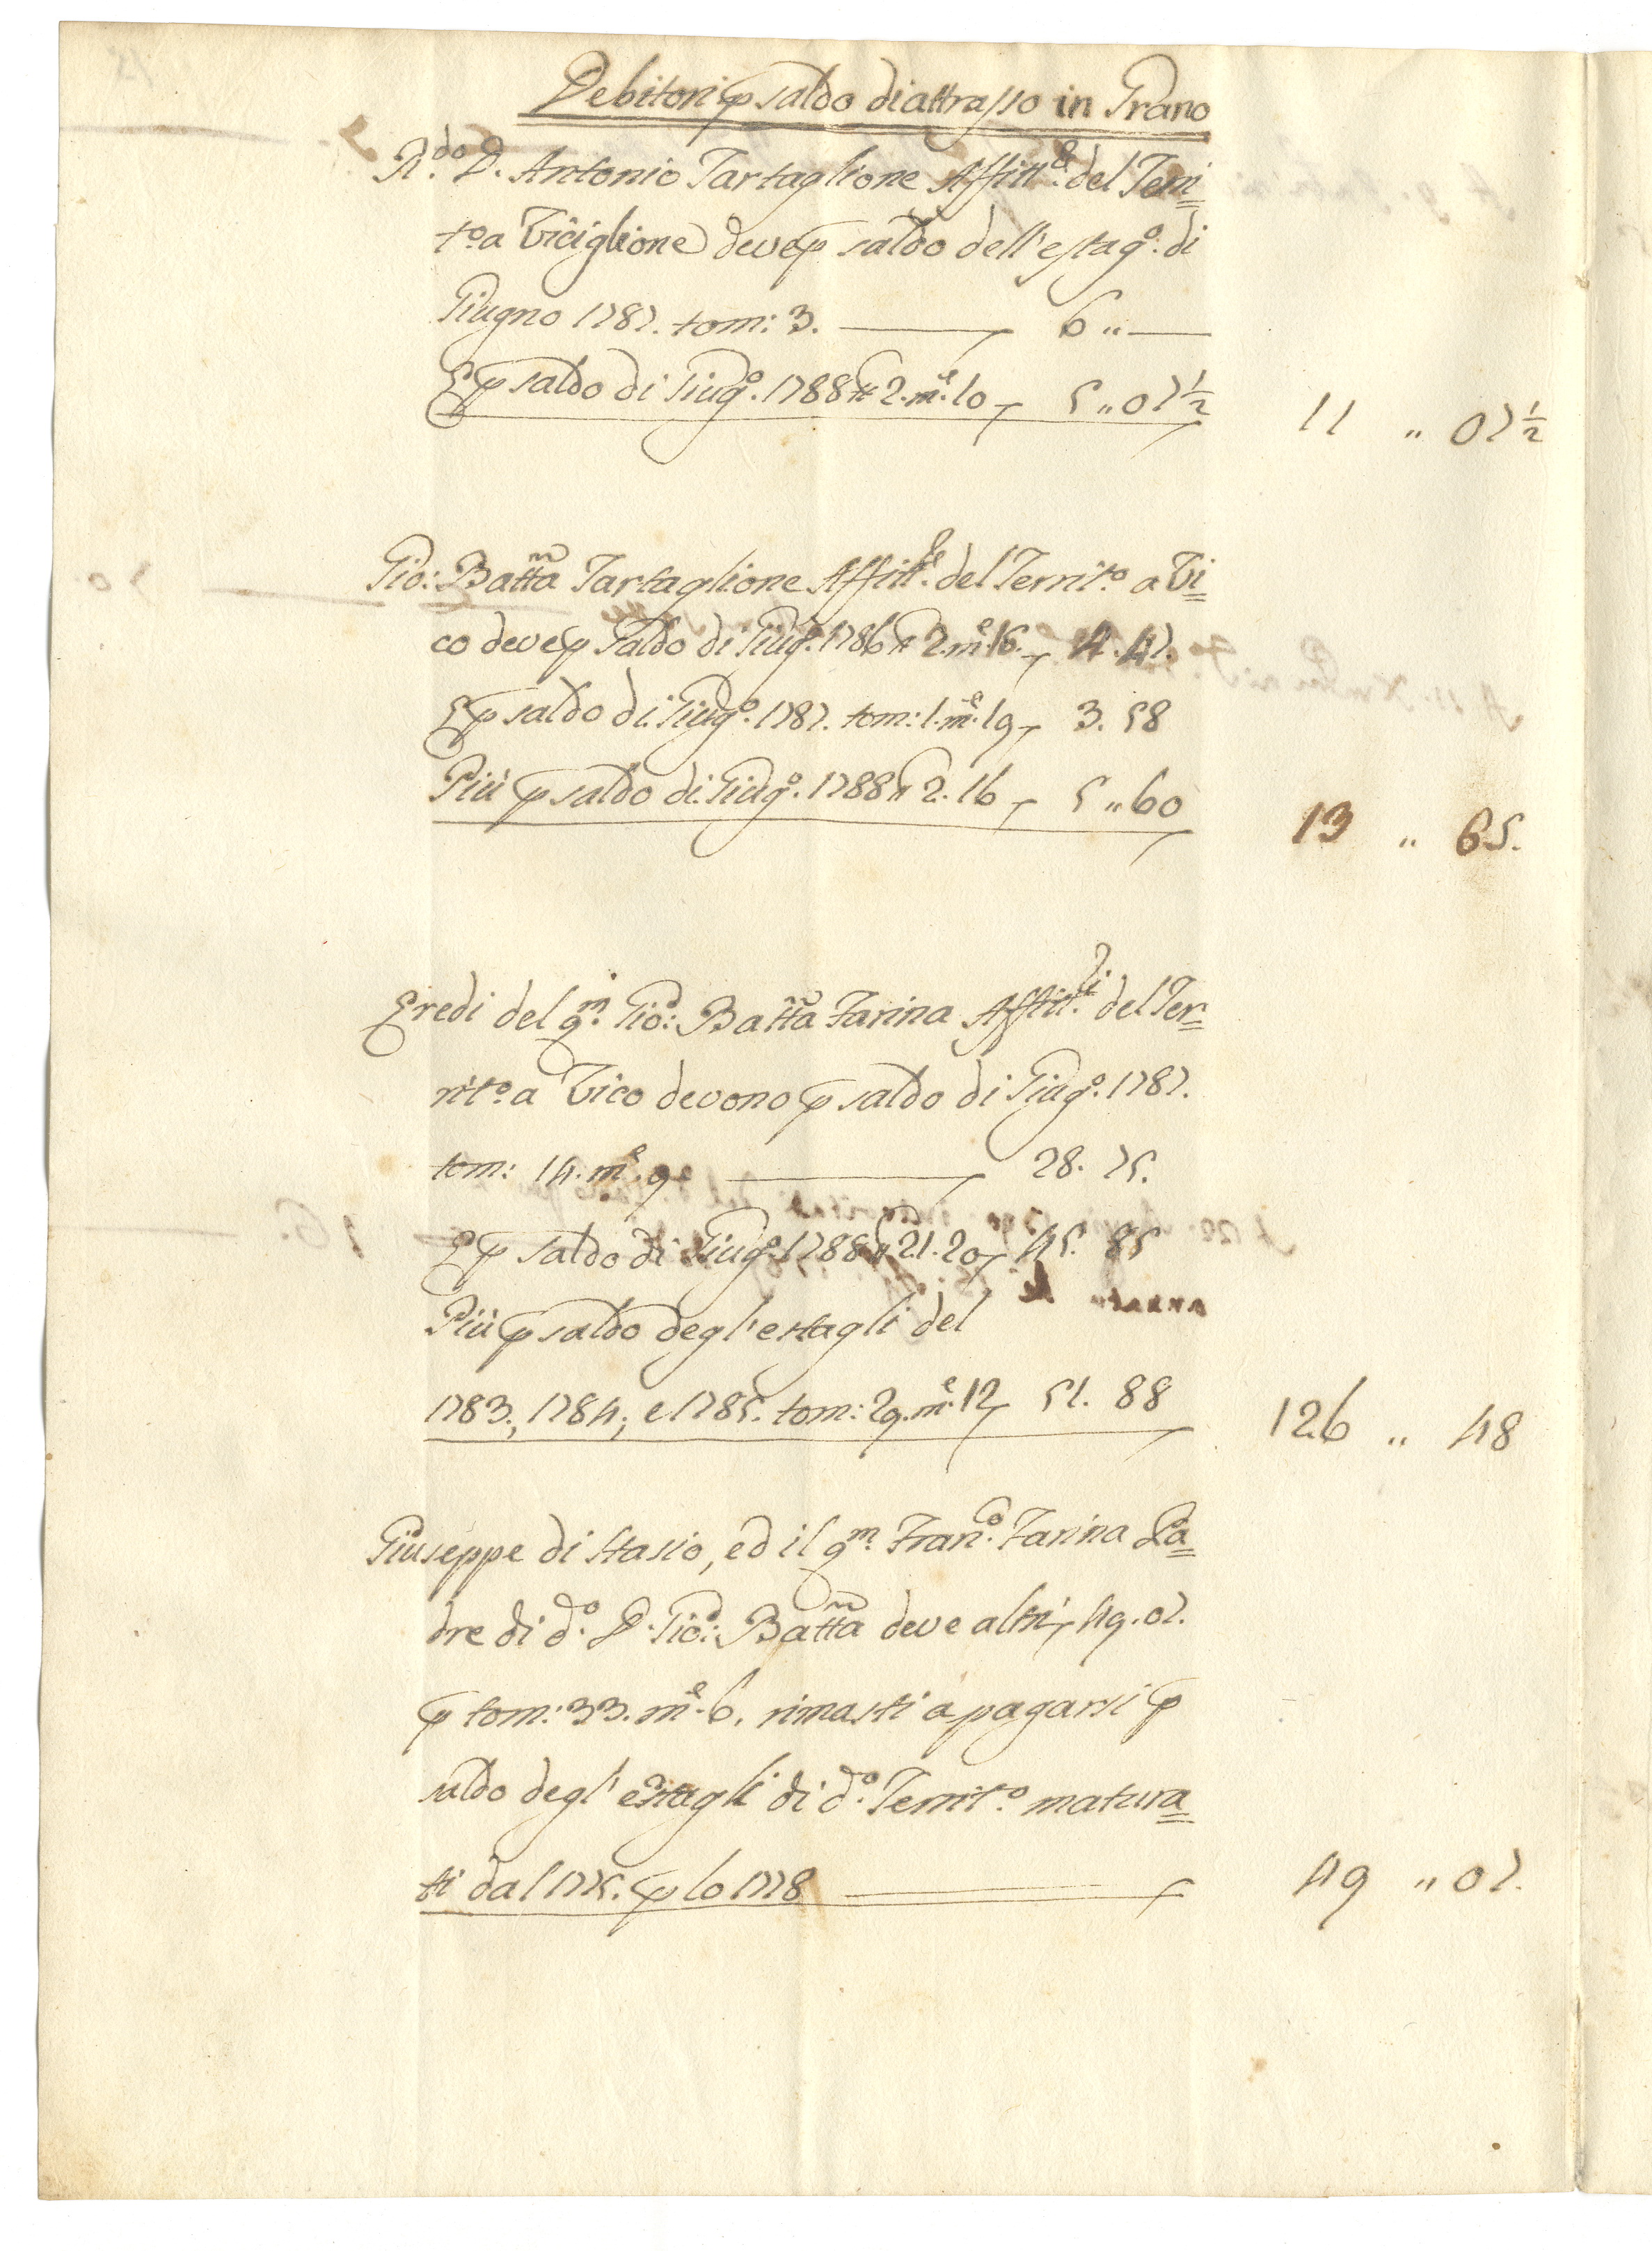 Debitori p saldo di attrasso in Grano
R.do D. Antonio Tartaglione Affitt.e del Terri=
t.o a Viciglione deve p saldo dell'estag.o di
Giugno 1787. tom: 3. 6 ,, —
E p saldo di Giug.o 1788 tt 2. m.e 10 5 ,, 07 1/2 11 ,, 07 1/2
Gio: Batta Tartaglione Affitt.e del Territ.o a Vi=
co deve p saldo di Giug.o 1786 tt 2. m.e 16. 4. 47.
E p saldo di Giug.o 1787. tom: 1. m.e 19 3. 58
Più p saldo di Giug.o 1788 tt 2. 16 5 ,, 60 13 ,, 65.
Eredi del q.m Gio: Batta Farina Affitt.i del Ter=
rit.o a Vico devono p saldo di Giug.o 1787.
tom: 14. m.e 9 28. 75.
E p saldo di Giug.o 1788 tt 21. 20 45. 85
Più p saldo degl'estagli del
1783., 1784, e 1785. tom: 29. m.e 12 51. 88 126 ,, 48
Giuseppe di Stasio, ed il q.m Fran.co Farina Pa=
dre di d.o D. Gio: Batta deve altri 49. 07.
p tom: 33. m.e 6. rimasti a pagarsi p
saldo degl'estagli di d.o Territ.o matura=
ti dal 1775. p lo 1778 49 ,, 07.